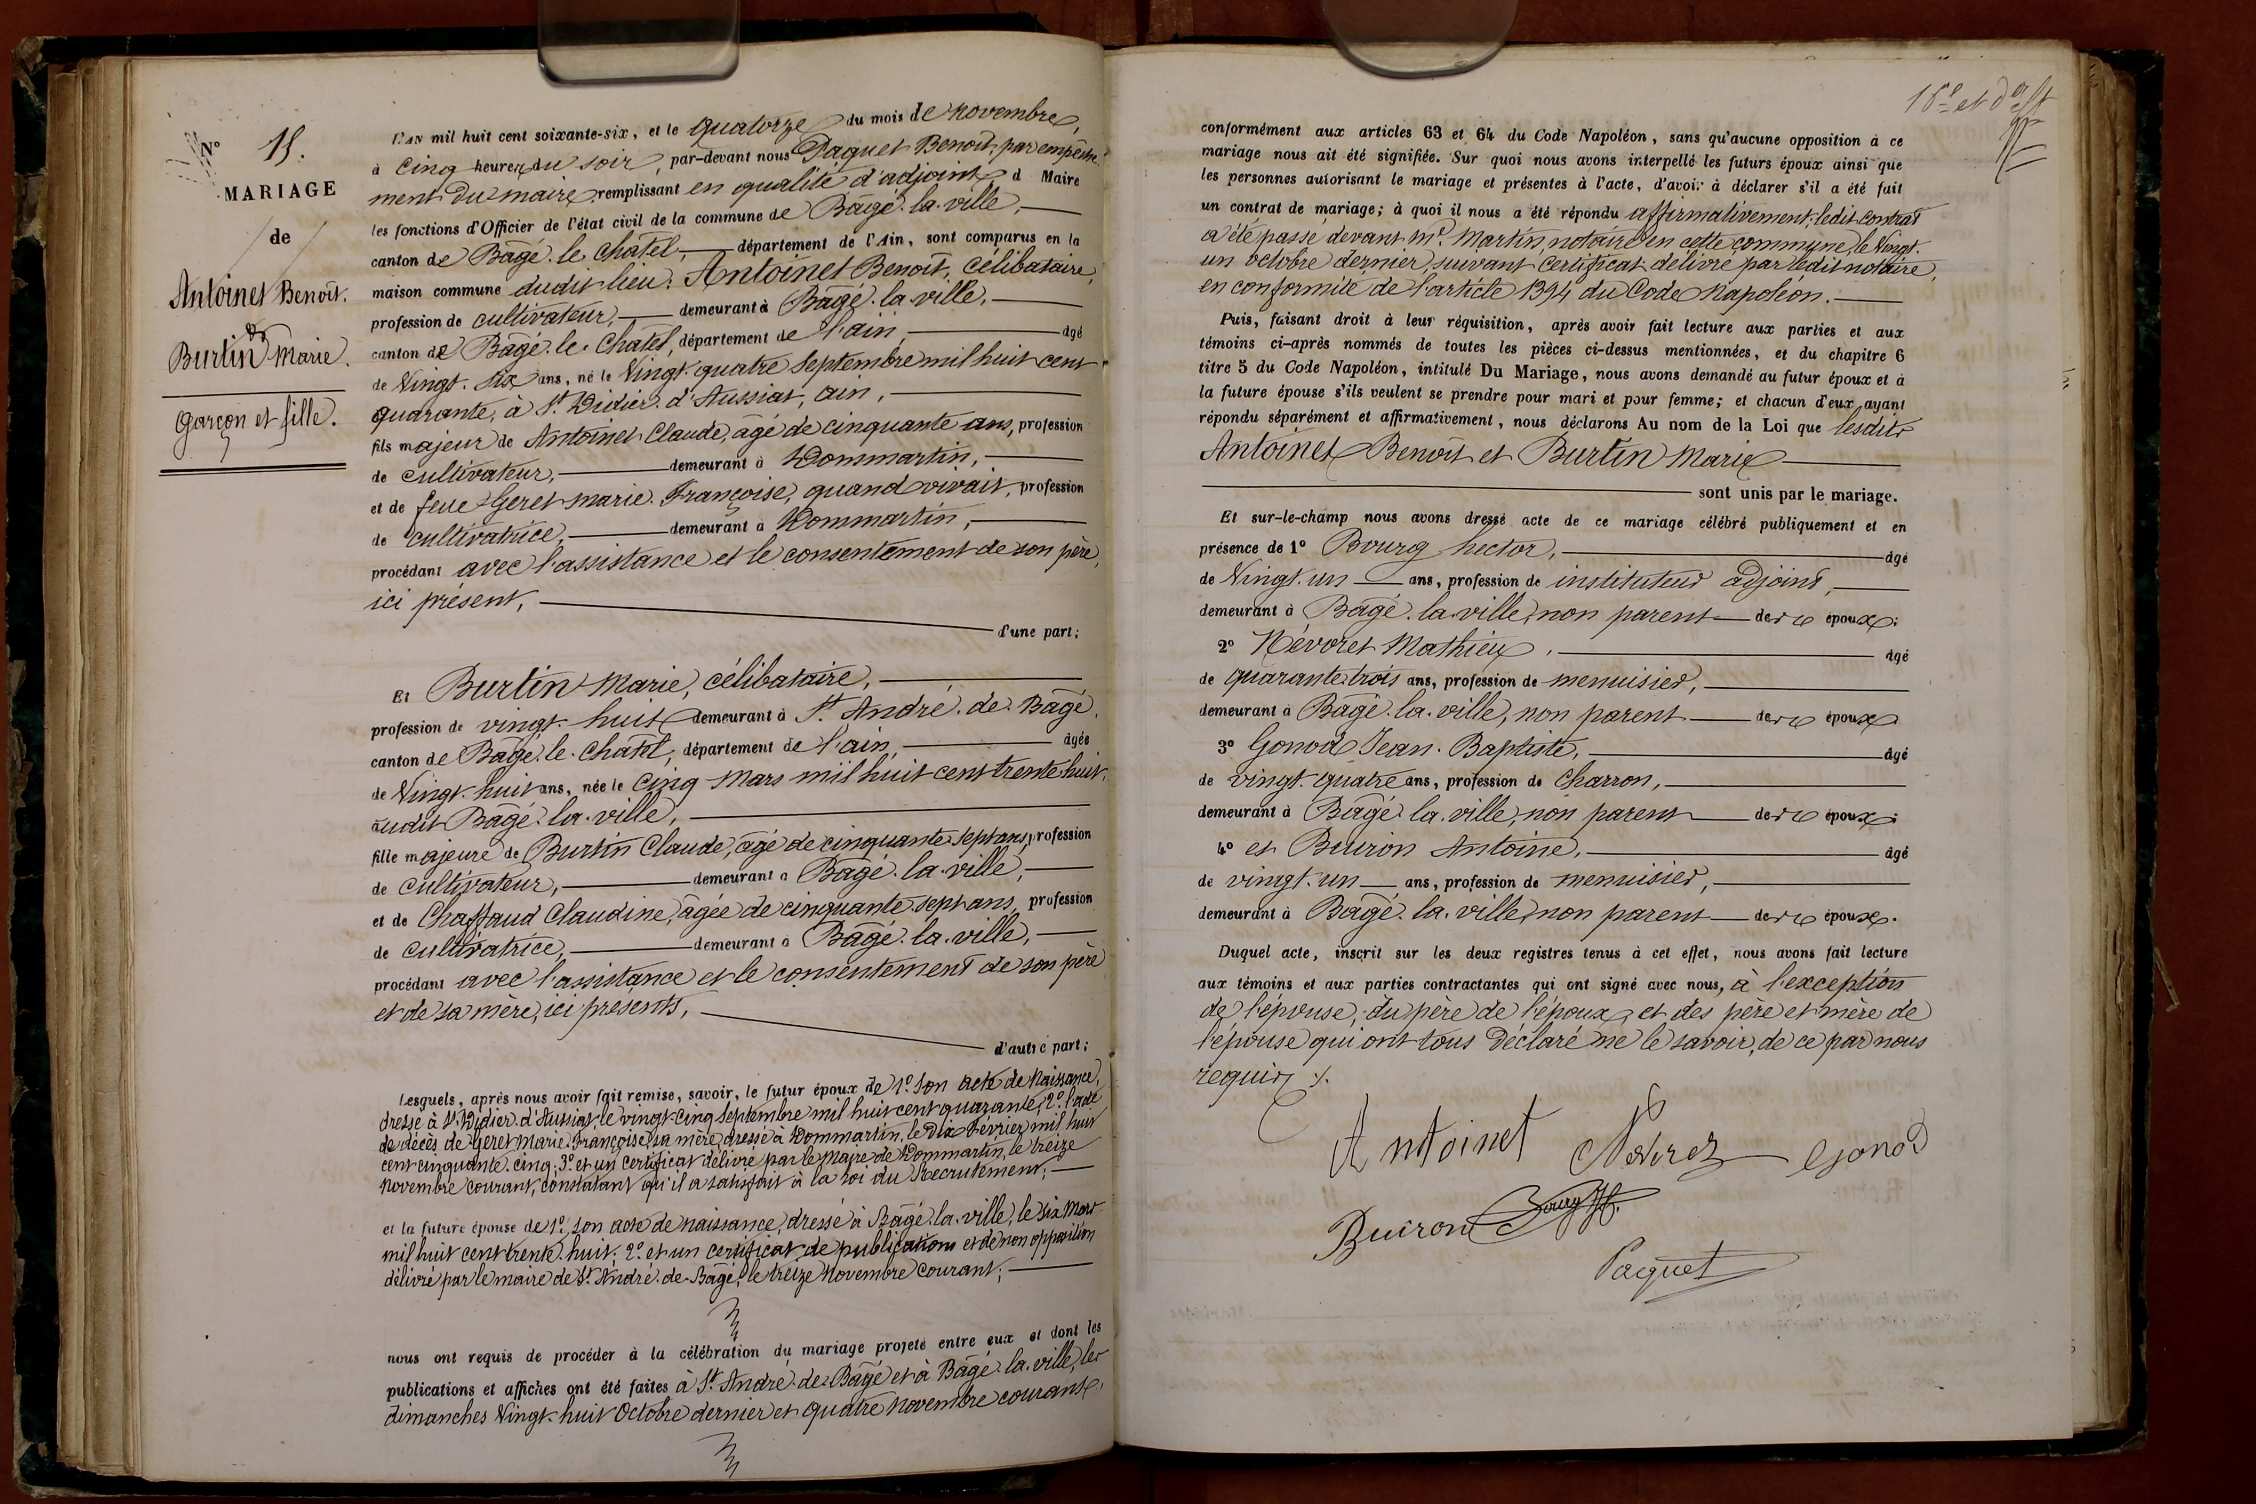 N° 15.
MARIAGE
de
Antoinet Benoît.
&
Burtin Marie.
Garçon et fille.
L'AN mil huit cent soixante-six, et le quatorze du mois de novembre,
à cinq heures du soir, par-devant nous Paquet Benoît, par empêche
ment du maire, remplissant en qualité d'adjoint d Maire
les fonctions d'Officier de l'état civil de la commune de Bâgé-la-ville,
canton de Bâgé-le-Châtel, département de l'Ain, sont comparus en la
maison commune dudit lieu: Antoinet Benoît, célibataire,
profession de cultivateur, demeurant à Bâgé-la-ville,
canton de Bâgé-le-Châtel, département de l'ain, âgé
de Vingt-six ans, né le Vingt-quatre Septembre mil huit cent
quarante, à St Didier-d'Aussiat, ain,
fils majeur de Antoinet Claude, âgé de cinquante ans, profession
de cultivateur, demeurant à Dommartin,
et de feue Geret Marie-Françoise, quand vivait, profession
de cultivatrice, demeurant à Dommartin,
procédant avec l'assistance et le consentement de son père,
ici présent,
d'une part;
Et Burtin Marie, célibataire,
profession de vingt-huit demeurant à St André-de-Bâgé,
canton de Bâgé-le-Châtel, département de l'ain, âgée
de Vingt-huit ans, née le cinq Mars mil huit cent trente-huit,
audit Bâgé-la-ville,
fille majeure de Burtin Claude, âgé de cinquante-sept ans, profession
de cultivateur, demeurant à Bâgé-la-ville,
et de Chaffaud Claudine, âgée de cinquante-sept ans, profession
de cultivatrice, demeurant à Bâgé-la-ville,
procédant avec l'assistance et le consentement de son père
et de sa mère, ici présents,
d'autre part;
Lesquels, après nous avoir fait remise, savoir, le futur époux de 1° Son acte de Naissance,
dressé à St Didier-d'Aussiat, le vingt-cinq Septembre mil huit cent quarante; 2° l'acte
de décès de Geret Marie-Françoise, sa mère, dressé à Dommartin, le dix Février mil huit
cent cinquante-cinq; 3° et un certificat délivré par le Maire de Dommartin, le treize
Novembre courant, constatant qu'il a satisfait à la loi du Recrutement;
et la future épouse de 1° son acte de naissance, dressé à Bâgé-la-ville, le six Mars
mil huit cent trente-huit; 2° et un certificat de publications et de non opposition
délivré par le maire de St André-de-Bâgé, le treize Novembre courant;
nous ont requis de procéder à la célébration du mariage projeté entre eux et dont les
publications et affiches ont été faites à St André-de-Bâgé et à Bâgé-la-ville, les
dimanches Vingt-huit Octobre dernier et quatre Novembre courant,
conformément aux articles 63 et 64 du Code Napoléon, sans qu'aucune opposition à ce
mariage nous ait été signifiée. Sur quoi nous avons interpellé les futurs époux ainsi que
les personnes autorisant le mariage et présentes à l'acte, d'avoir à déclarer s'il a été fait
un contrat de mariage; à quoi il nous a été répondu affirmativement, ledit contrat
a été passé devant Me Martin notaire en cette commune, le Vingt-
un octobre dernier, suivant certificat délivré par ledit notaire,
en conformité de l'article 1394 du Code Napoléon.
Puis, faisant droit à leur réquisition, après avoir fait lecture aux parties et aux
témoins ci-après nommés de toutes les pièces ci-dessus mentionnées, et du chapitre 6
titre 5 du Code Napoléon, intitulé Du Mariage, nous avons demandé au futur époux et à
la future épouse s'ils veulent se prendre pour mari et pour femme; et chacun d'eux ayant
répondu séparément et affirmativement, nous déclarons Au nom de la Loi que lesdits
Antoinet Benoît et Burtin Marie
sont unis par le mariage.
Et sur-le-champ nous avons dressé acte de ce mariage célébré publiquement et en
présence de 1° Bourg hector, âgé
de Vingt-un ans, profession de instituteur adjoint,
demeurant à Bâgé-la-ville, non parent des époux;
2° Névoret Mathieu, âgé
de quarante-trois ans, profession de menuisier,
demeurant à Bâgé-la-ville, non parent des époux
3° Gonod Jean-Baptiste, âgé
de vingt-quatre ans, profession de charron,
demeurant à Bâgé-la-ville, non parent des époux;
4° et Buiron Antoine, âgé
de vingt-un ans, profession de menuisier,
demeurant à Bâgé-la-ville, non parent des époux.
Duquel acte, inscrit sur les deux registres tenus à cet effet, nous avons fait lecture
aux témoins et aux parties contractantes qui ont signé avec nous, à l'exception
de l'épouse, du père de l'époux, et des père et mère de
l'épouse qui ont tous déclaré ne le savoir, de ce par nous
requis ./.
Antoinet Gonod
Buiron Bourg H.
Paquet